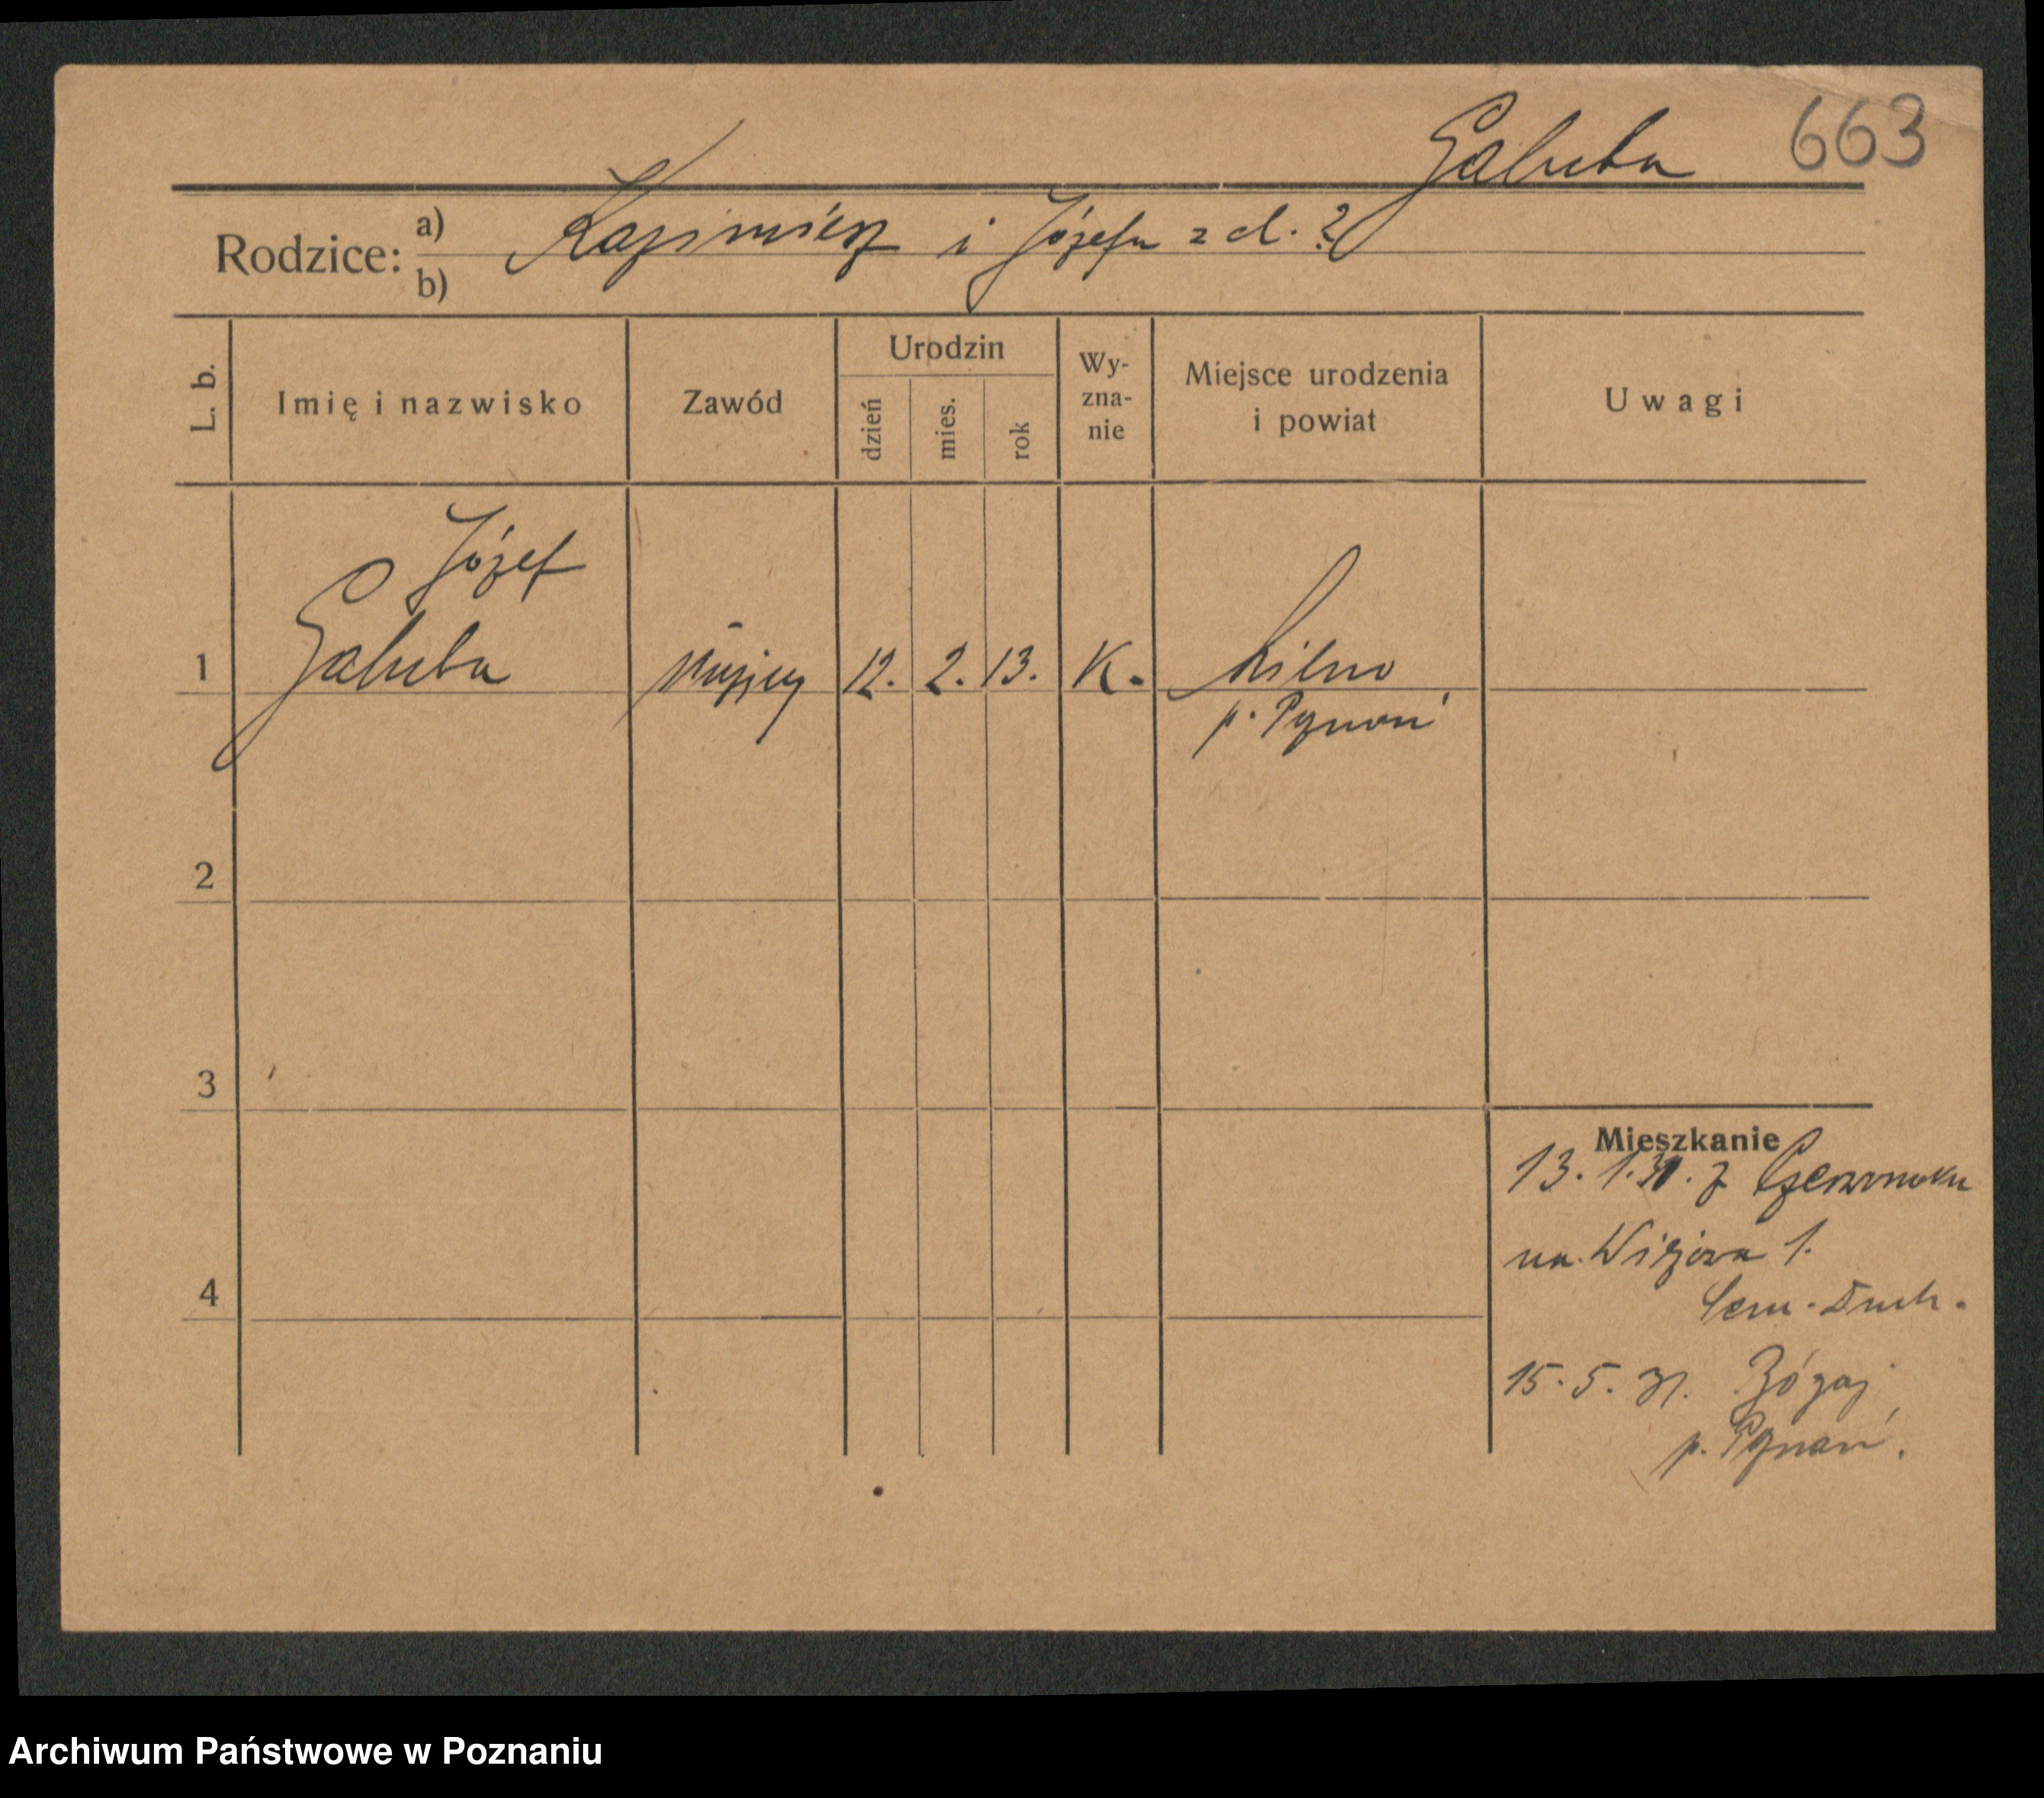 Galuba 663
Rodzice: a) Kazimierz i Józefa z d. ?
b)
L. b. Imię i nazwisko Zawód Urodzin dzień mies. rok Wy-zna-nie Miejsce urodzenia i powiat Uwagi
Józef
1 Galuba służący 12. 2. 13. K.
p. Poznań
2
3
Mieszkanie
13. 1. 31. z Czerwonaku
na. Wieżowa 1.
4
Sem. Duch.
15. 5. 31.
p. Poznań.
Archiwum Państwowe w Poznaniu